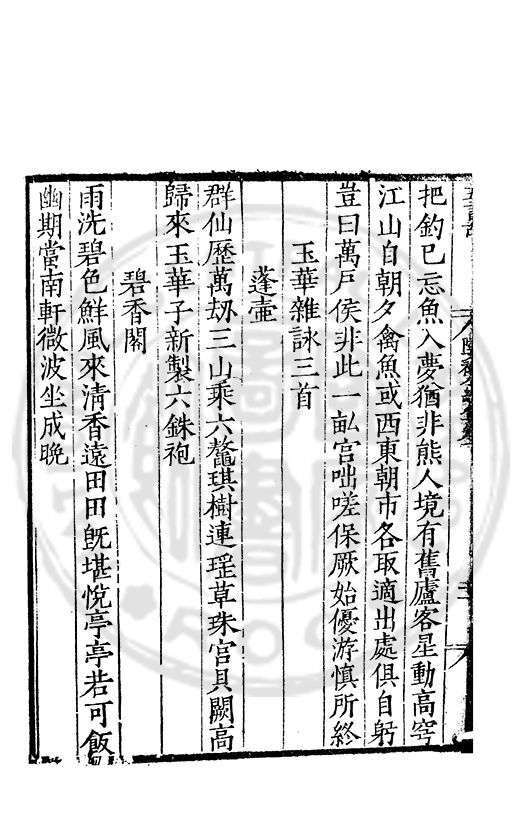 把釣已忘魚入夢猶非熊人境有舊廬客星動高穹
江山自朝夕禽魚或西東朝市各取適出處俱自躬
豈曰萬戶侯非此一畝宮咄嗟保厥始優游慎所終
玉華雜詠三首
蓬壺
群仙歷萬刼三山乘六鼇琪樹連瑶草珠宮貝闕高
歸來玉華子新製六銖袍
碧香閣
雨洗碧色鮮風來清香遠田田旣堪悅亭亭若可飯
幽期當南軒微波坐成晩